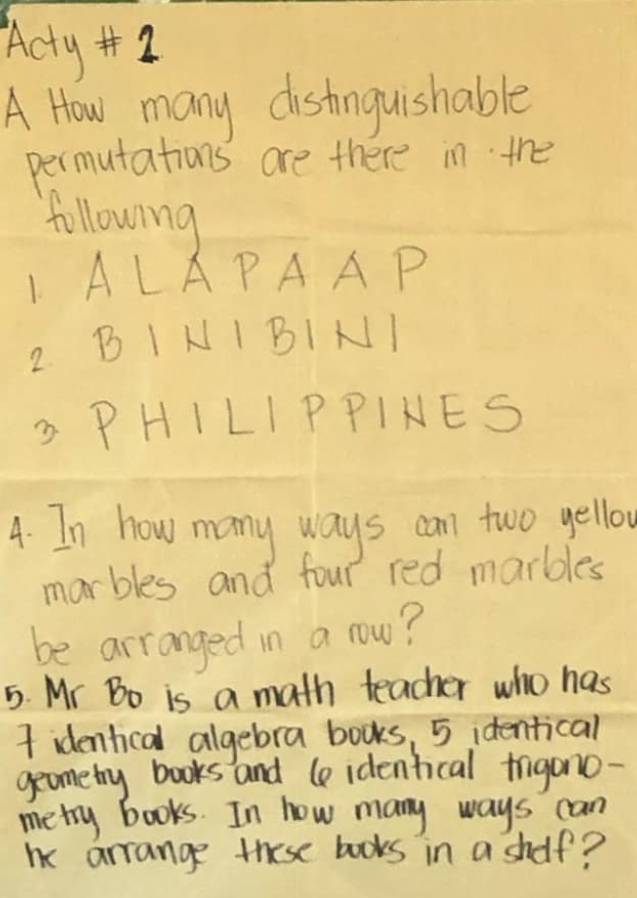 Acty # 1
A How many distinguishable
permutations are there in the
following
1. A L A P A A P
2. B I N I B I N I
3. P H I L I P P I N E S
4. In how many ways can two yellow
marbles and four red marbles
be arranged in a row?
5. Mr Bo is a math teacher who has
7 identical algebra books, 5 identical
geometry books and 6 identical trigono-
metry books. In how many ways can
he arrange these books in a shelf?